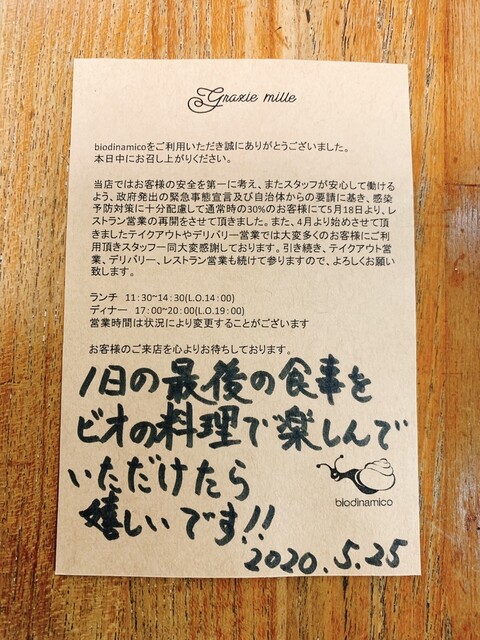 Grazie mille
biodinamicoをご利用いただき誠にありがとうございました。
本日中にお召し上がりください。
当店ではお客様の安全を第一に考え、またスタッフが安心して働ける
よう、政府発出の緊急事態宣言及び自治体からの要請に基き、感染
予防対策に十分配慮して通常時の30%のお客様にて5月18日より、レ
ストラン営業の再開をさせて頂きました。また、4月より始めさせて頂
きましたテイクアウトやデリバリー営業では大変多くのお客様にご利
用頂きスタッフ一同大変感謝しております。引き続き、テイクアウト営
業、デリバリー、レストラン営業も続けて参りますので、よろしくお願い
致します。
ランチ 11:30~14:30(L.O.14:00)
ディナー 17:00~20:00(L.O.19:00)
営業時間は状況により変更することがございます
お客様のご来店を心よりお待ちしております。
1日の最後の食事を
ビオの料理で楽しんで
いただけたら
嬉しいです!!
biodinamico
2020.5.25